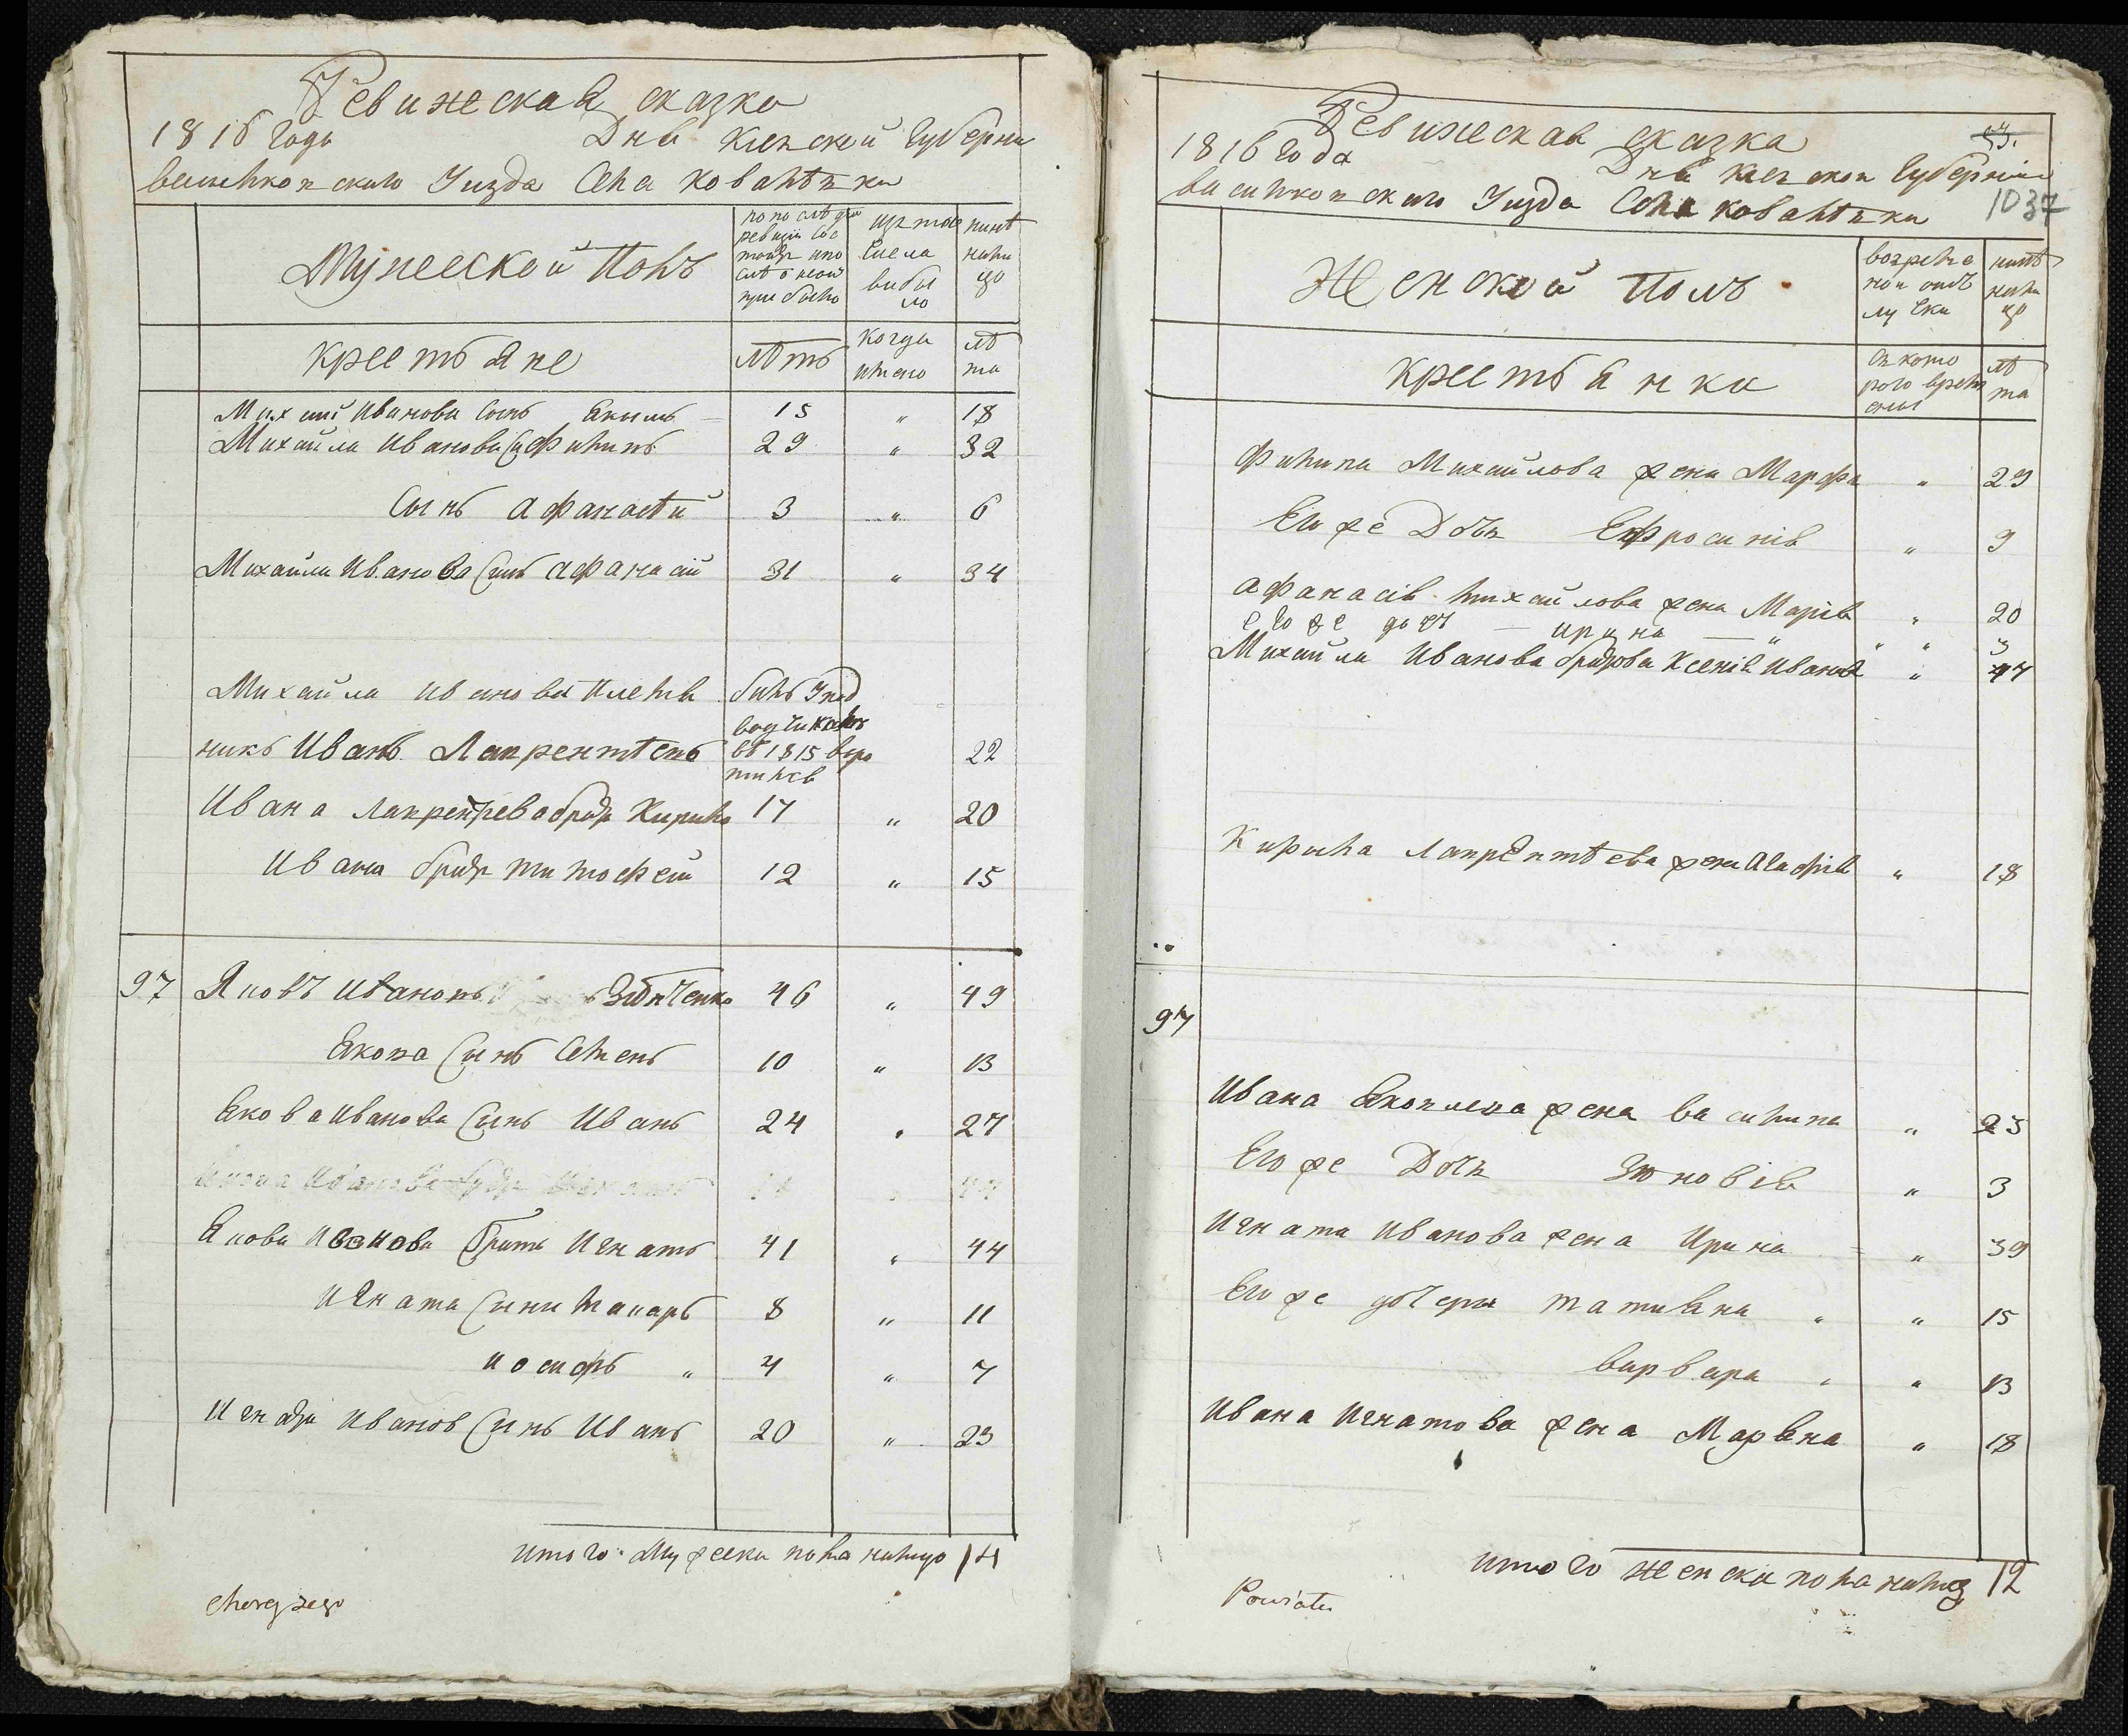 Ревижская сказка
1816 года Дня Киевской Губерни
васильковскаго Уизда Села Ковалѣвки
Мужеской Полъ
по последней
ревизіи сос
тояло и по
слѣ оной
прибыло
изъ того
числа
выбы
ло
нинѣ
нали
цо
крестьяне
лѣтъ
когда
имено
лѣ
та
Михаила Иванова Сынъ Якимъ 15 " 18
Михаила Иванова Сынъ Филипъ 29 " 32
Сынъ Афанасѣй 3 " 6
Михаила Иванова Синъ Афанасій 31 " 34
Михаила Иванова племя
никъ Иванъ Лаврентѣевъ
въ 1815 22
Ивана Лаврентѣева братъ Кирило 17 " 20
Ивана братъ Тимофей 12 " 15
97 Яковъ Ивановъ 46 " 49
Якова Синъ Семенъ 10 " 13
Якова Иванова Синъ Иванъ 24 " 27
Якова Иванова братъ Игнатъ 41 " 44
Игната Сини Макаръ 8 " 11
Иосифъ " 4 " 7
Игната Иванов Синъ Иванъ 20 " 23
итого мужеска пола налицо 14
Ревижская сказка
1816 года Дня Киевской Губерніи
васильковскаго Уизда Села Ковалѣвки
1037
Женской Полъ
во времен
ной отъ
лучки
нинѣ
нали
цо
крестьянки
съ кото
рого врем
ени
лѣ
та
Филипа Михайлова жена Марфа " 29
Егоже Дочь Ефросинія " 9
Афанасія Михайлова жена Марія " 20
егоже дочь — Ирина — " " " 3
Михайла Иванова братова Ксенія Иванова " 47
Кирила Лаврентѣева жена Агафія " 18
97
Ивана Яковлева жена Василина " 23
Егоже Дочь Зѣновія " 3
Игната Иванова жена Ирина " 39
Егоже дочери Татияна " " 15
Варвара " " 13
Ивана Игнатова жена Маряна " 18
итого женска пола налицо 12
Powiatu